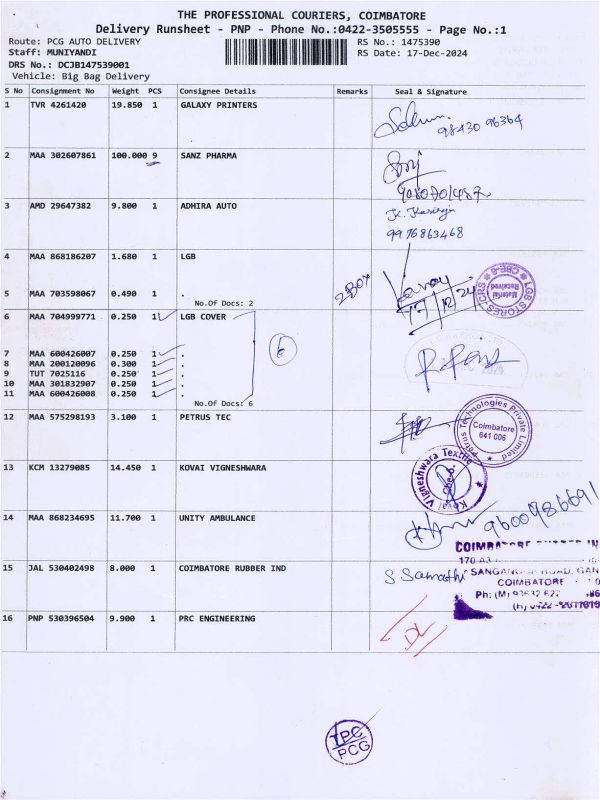 THE PROFESSIONAL COURIERS, COIMBATORE
Delivery Runsheet - PNP - Phone No.:0422-3505555 - Page No.:1
Route: PCG AUTO DELIVERY RS No.: 1475390
Staff: MUNIYANDI RS Date: 17-Dec-2024
DRS No.: DCJB147539001
Vehicle: Big Bag Delivery
S No Consignment No Weight PCS Consignee Details Remarks Seal & Signature
1 TVR 4261420 19.850 1 GALAXY PRINTERS
98430 96364
2 MAA 302607861 100.000 9 SANZ PHARMA
3 AMD 29647382 9.800 1 ADHIRA AUTO
9976863468
4 MAA 868186207 1.680 1 LGB
2 BOX
17/12/24
LGB STORES / CRS CBE-6 Material Received
5 MAA 703598067 0.490 1 .
No.Of Docs: 2
6 MAA 704999771 0.250 1 LGB COVER
6
7 MAA 600426007 0.250 1 .
8 MAA 200120096 0.300 1 .
9 TUT 7025116 0.250 1 .
10 MAA 301832907 0.250 1 .
11 MAA 600426008 0.250 1 .
No.Of Docs: 6
12 MAA 575298193 3.100 1 PETRUS TEC
Petrus Technologies Private Limited Coimbatore 641 006
13 KCM 13279085 14.450 1 KOVAI VIGNESHWARA
Kovai Vigneshwara Textile Cbe-6.
14 MAA 868234695 11.700 1 UNITY AMBULANCE
9600986691
15 JAL 530402498 8.000 1 COIMBATORE RUBBER IND
COIMBATORE RUBBER IN
COIMBATORE
16 PNP 530396504 9.900 1 PRC ENGINEERING
DL
TPC
PCG